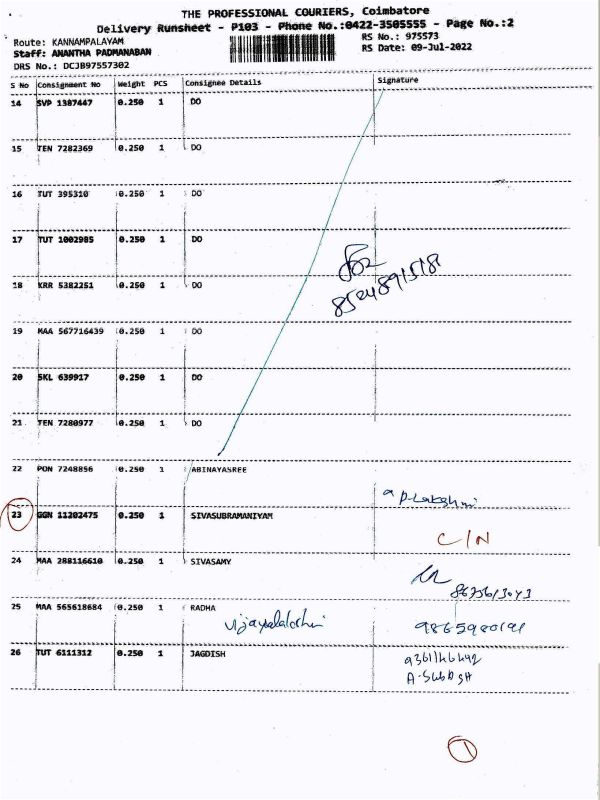 THE PROFESSIONAL COURIERS, Coimbatore
Delivery Runsheet - P103 - Phone No.:0422-3505555 - Page No.:2
Route: KANNAMPALAYAM
RS No.: 975573
Staff: ANANTHA PADMANABAN
RS Date: 09-Jul-2022
DRS No.: DCJB97557302
S No Consignment No Weight PCS Consignee Details Signature
14 SVP 1387447 0.250 1 DO
15 TEN 7282369 0.250 1 DO
16 TUT 395310 0.250 1 DO
17 TUT 1002985 0.250 1 DO
18 KRR 5382251 0.250 1 DO
19 MAA 567716439 0.250 1 DO
20 SKL 639917 0.250 1 DO
21 TEN 7280977 0.250 1 DO
22 PON 7248856 0.250 1 ABINAYASREE
P-Lakshmi
23 GGN 11202475 0.250 1 SIVASUBRAMANIYAM
C/N
24 MAA 288116610 0.250 1 SIVASAMY
25 MAA 565618684 0.250 1 RADHA
26 TUT 6111312 0.250 1 JAGDISH
1